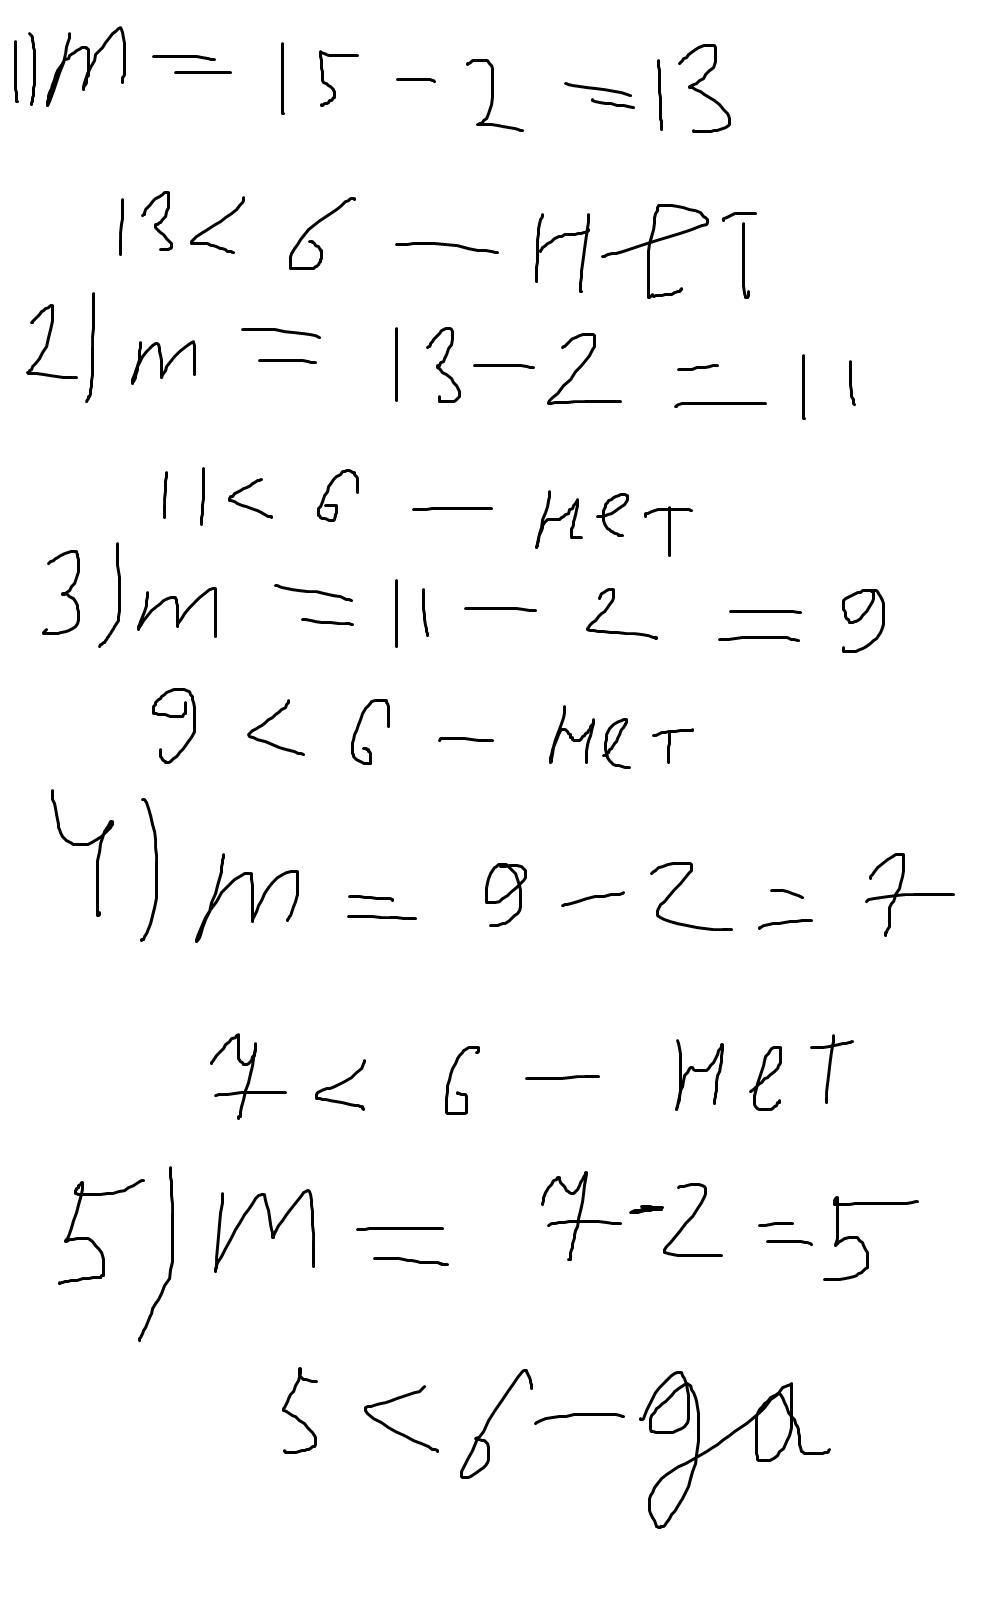 1) m = 15 - 2 = 13
13 < 6 — нет
2) m = 13 - 2 = 11
11 < 6 — нет
3) m = 11 - 2 = 9
9 < 6 - нет
4) m = 9 - 2 = 7
7 < 6 - нет
5) m = 7 - 2 = 5
5 < 6 - да